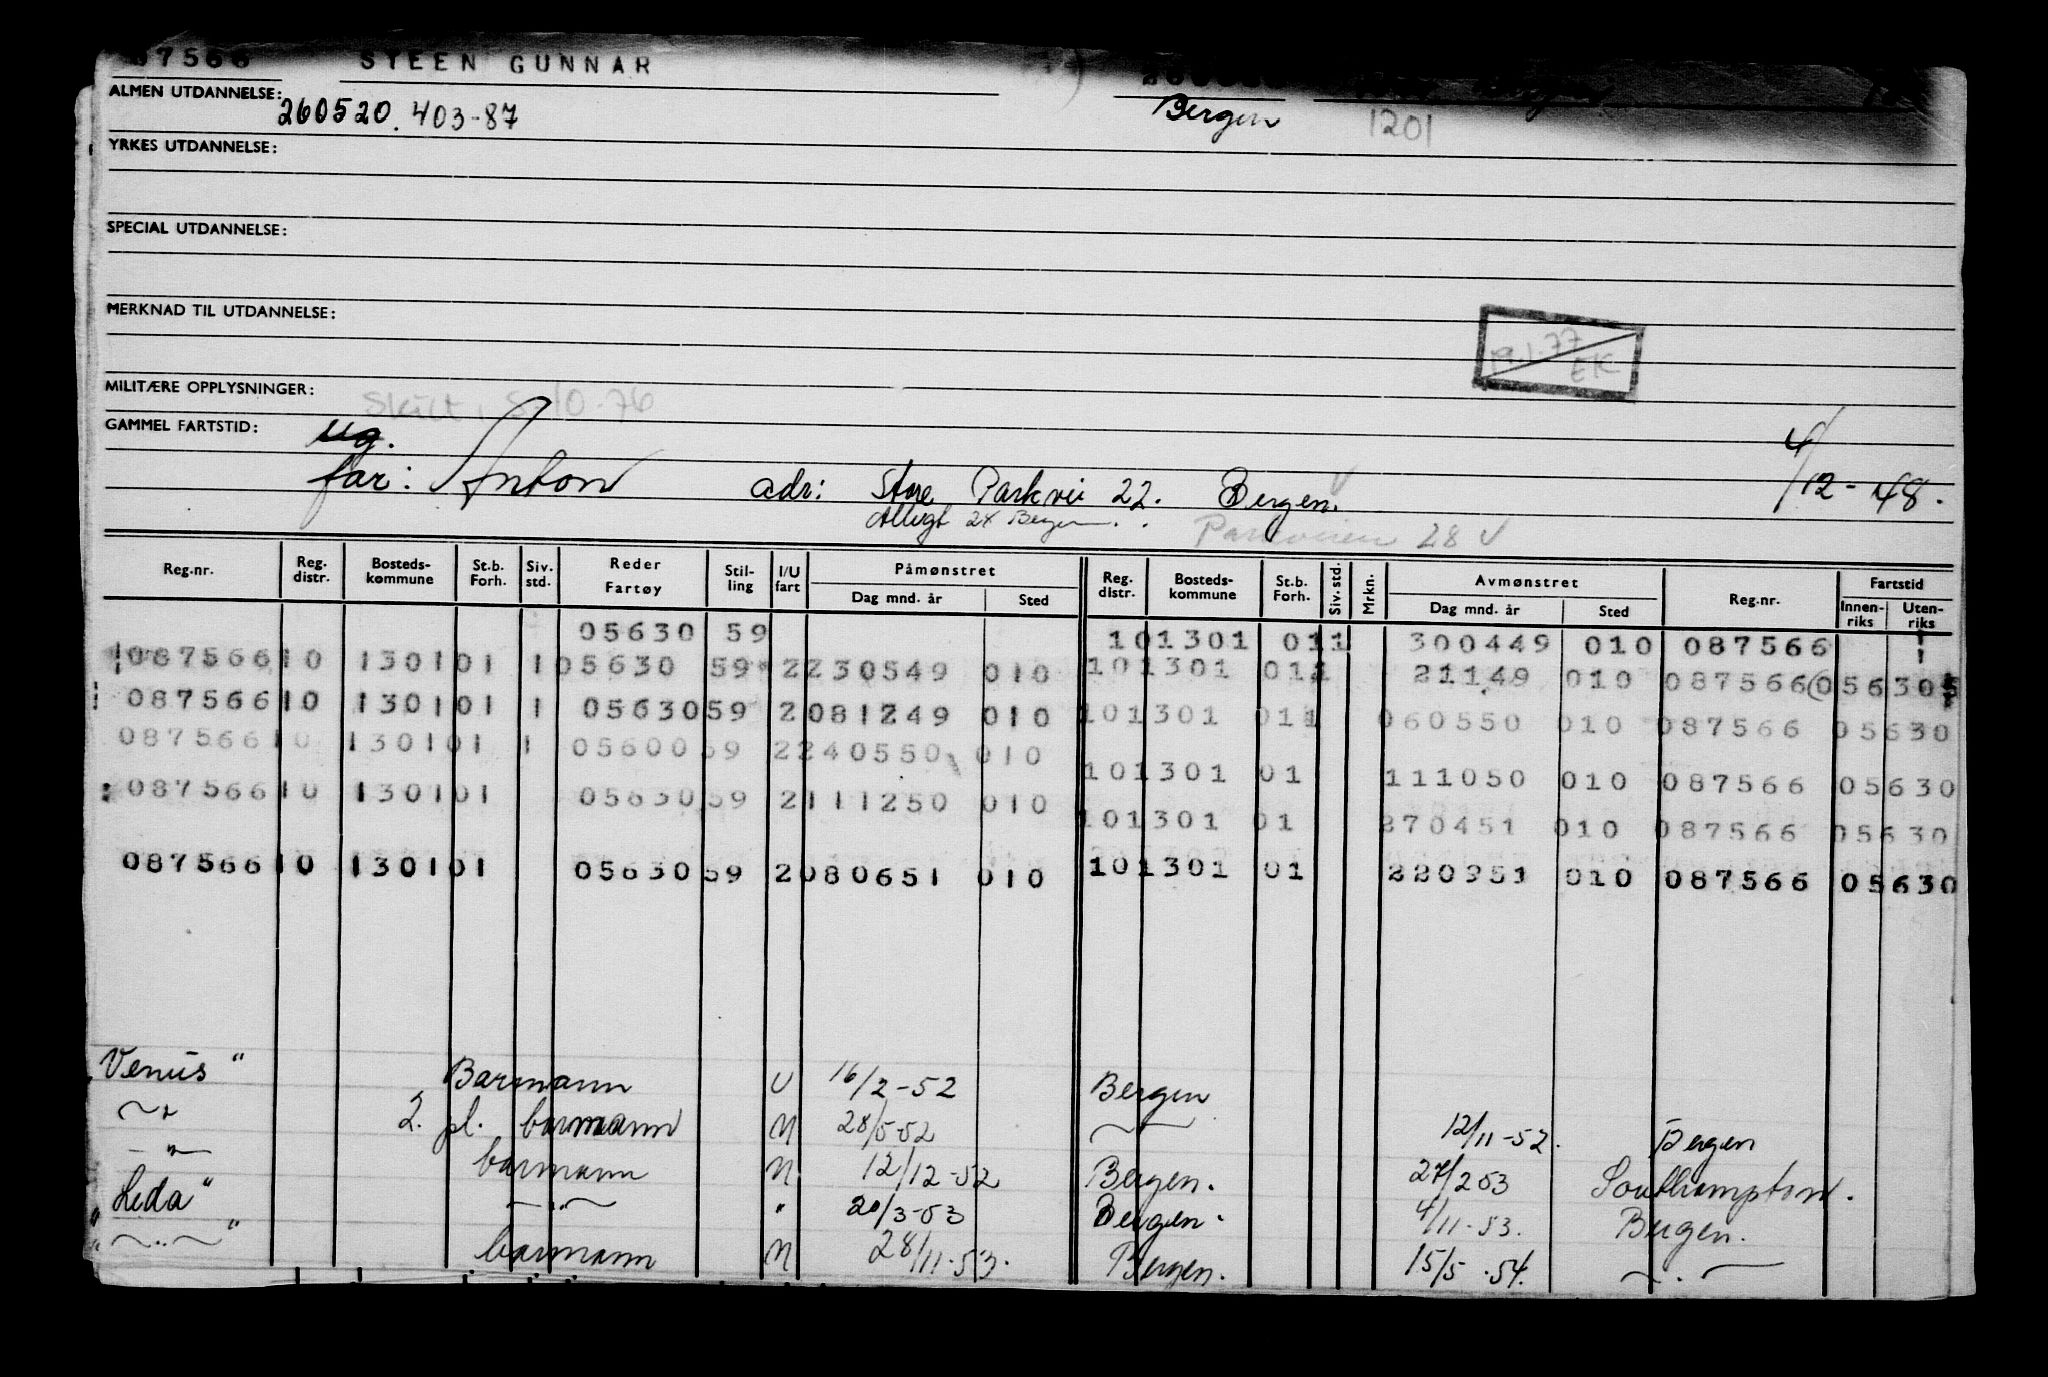 87566 STEEN GUNNAR
ALMEN UTDANNELSE: 260520. 403-87 Bergen 1201
YRKES UTDANNELSE:
SPECIAL UTDANNELSE:
MERKNAD TIL UTDANNELSE:
77
EK
MILITÆRE OPPLYSNINGER: 10-76
GAMMEL FARTSTID: ug.
far: Anton adr: Store Parkvei 22. Bergen. 4/12-48.
Allégt 24 Bergen. Parkveien 28
Reg.nr. Reg. distr. Bosteds-kommune St.b. Forh. Siv. std. Reder Fartøy Stil-ling I/U fart Påmønstret Dag mnd. år Sted Reg. distr. Bosteds-kommune St.b. Forh. Siv. std. Mrkn. Avmønstret Dag mnd. år Sted Reg.nr. Fartstid Innen-riks Uten-riks
05630 59 101301 011 300449 010 087566
087566 10 130101 1 05630 59 2230549 010 101301 011 21149 010 087566 05630
087566 10 130101 1 05630 59 2081249 010 101301 011 060550 010 087566 05630
087566 10 130101 1 05600 59 2240550 010 101301 01 111050 010 087566 05630
087566 10 130101 05630 59 2111250 010 101301 01 270451 010 087566 05630
087566 10 130101 05630 59 2080651 010 101301 01 220951 010 087566 05630
Venus" Barmann U 16/2-52 Bergen
-"- 2. pl. barmann U 28/5-52 -"- 12/11-52. Bergen
-"- barmann U 12/12-52 Bergen. 27/2 53 Southampton.
Leda" -"- " 20/3-53 Bergen. 4/11-53. Bergen.
"-"-" barmann U 28/11-53. Bergen. 15/5-54. -"-